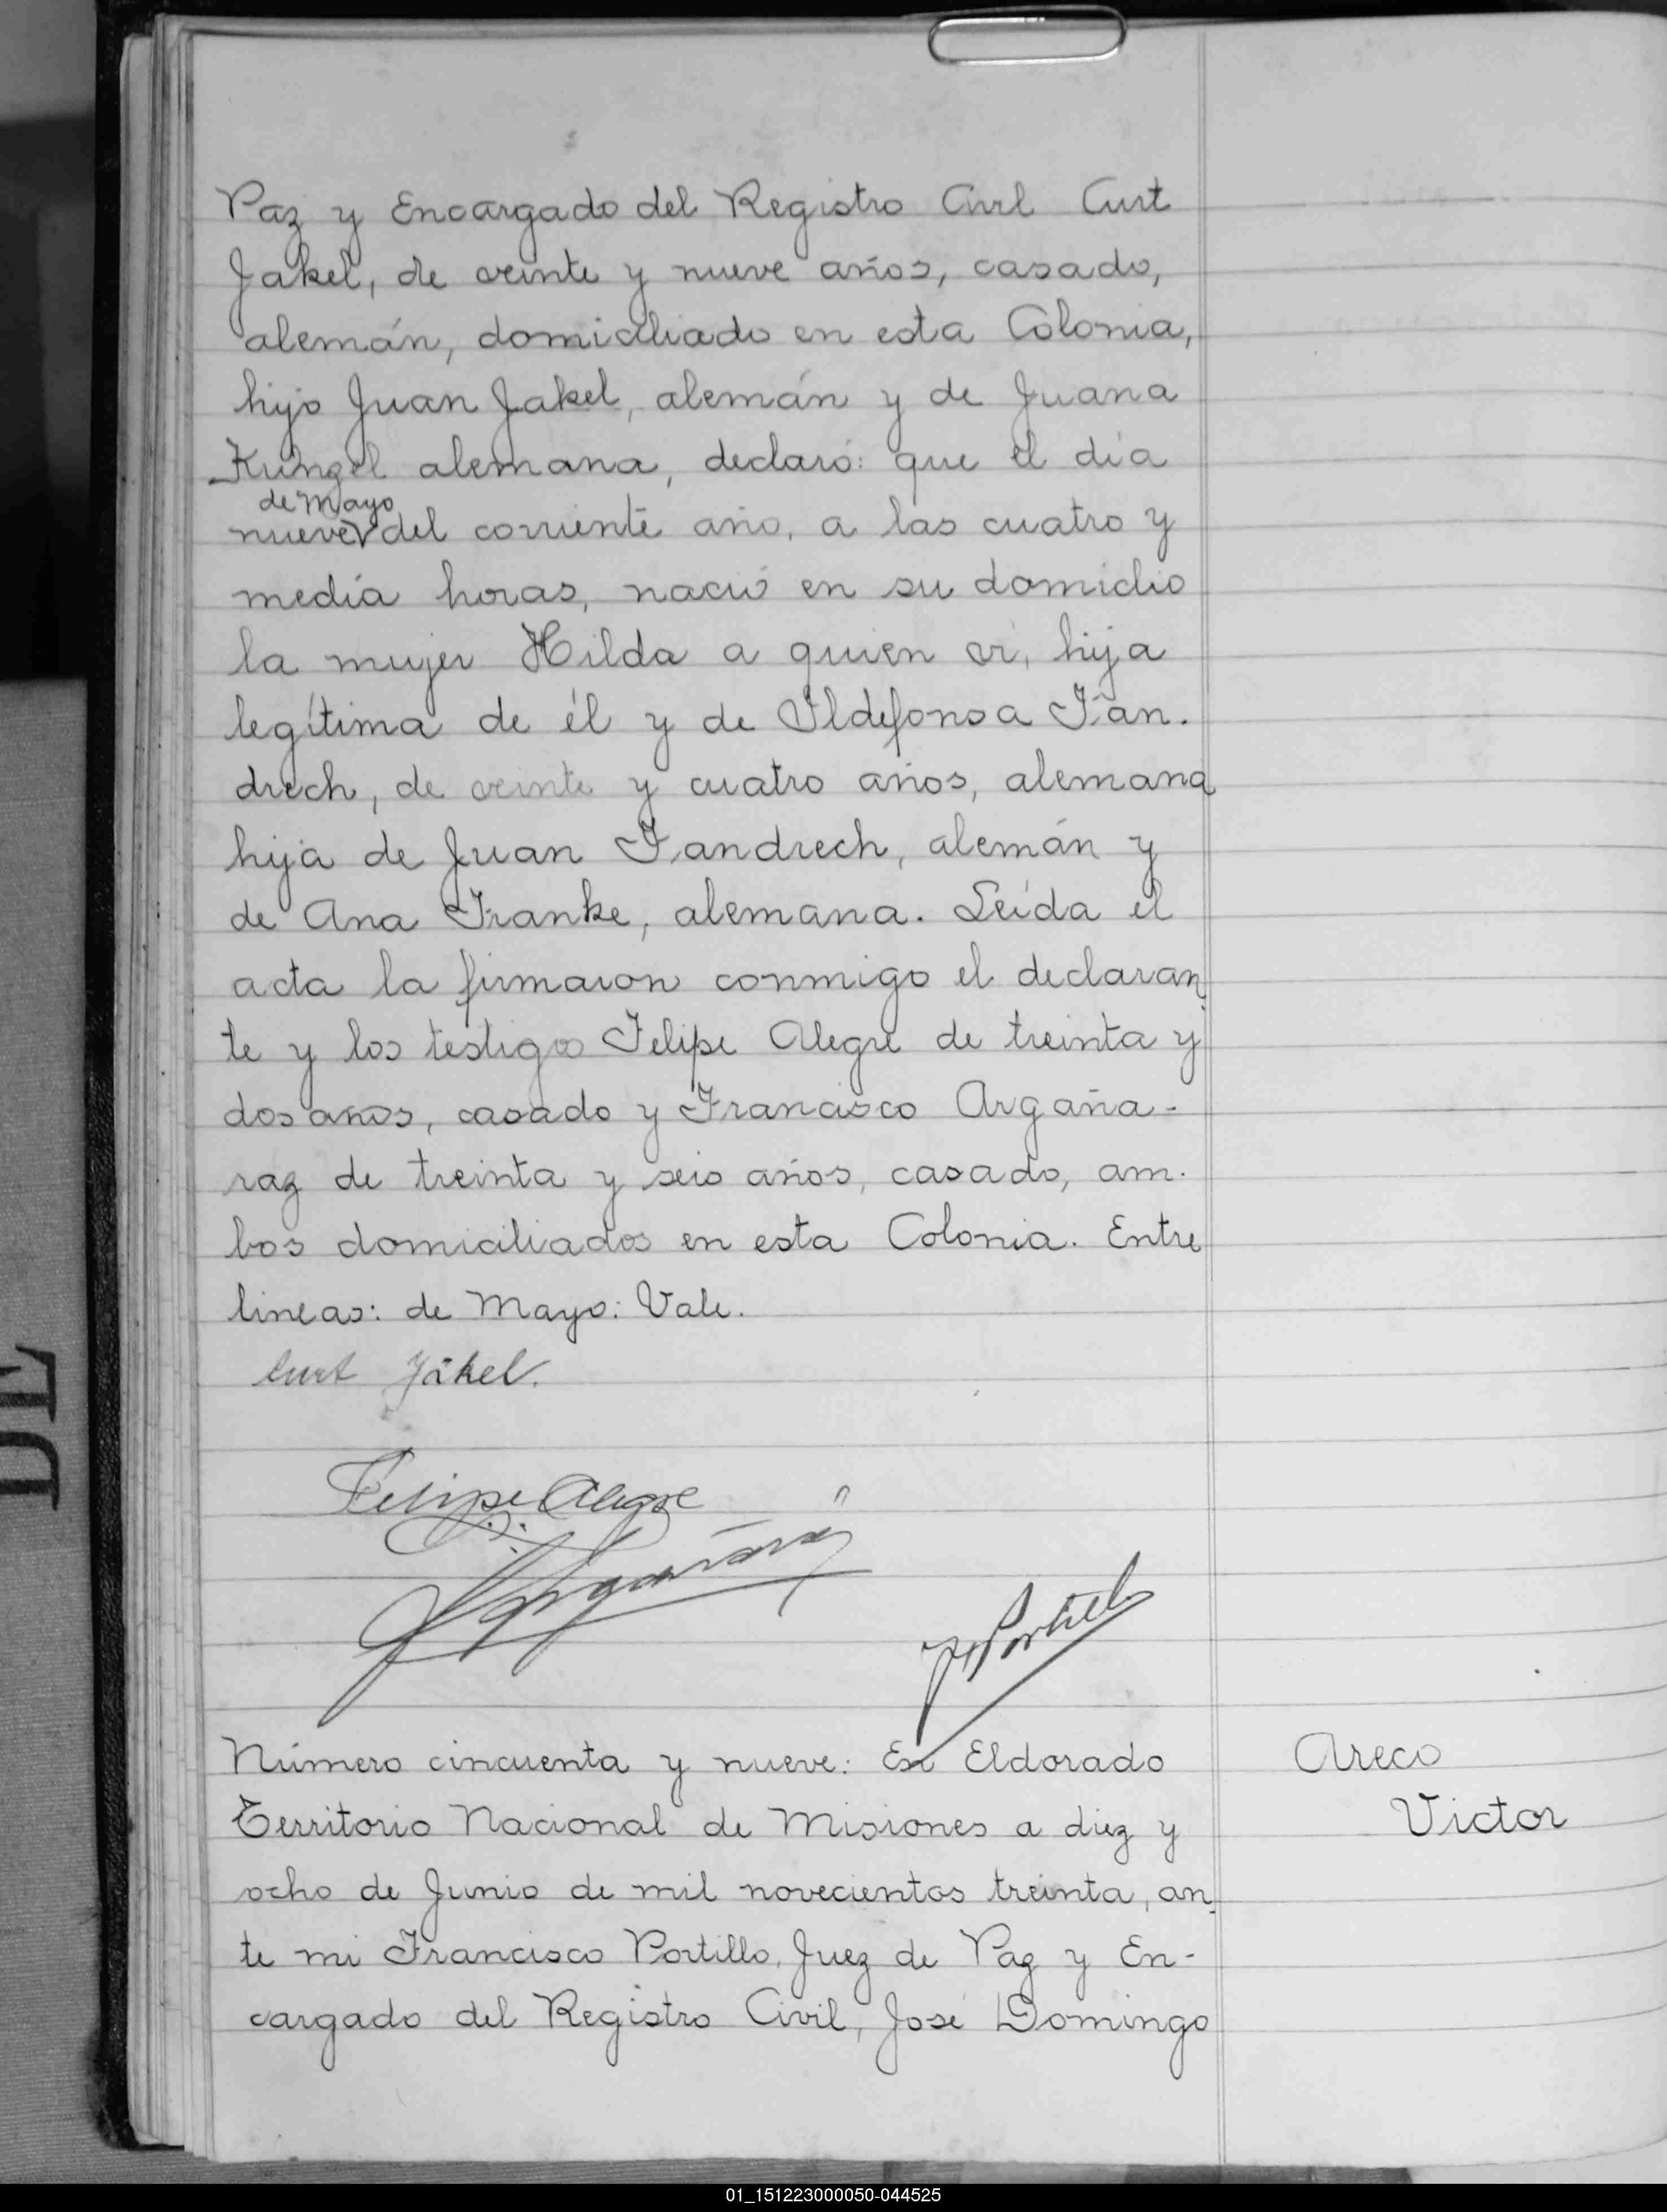 Paz y Encargado del Registro Civil Curt
Jakel, de veinte y nueve años, casado,
alemán, domiciliado en esta Colonia,
hijo Juan Jakel, alemán y de Juana
Kungel alemana, declaró: que el día
de Mayo
nueve del corriente año, a las cuatro y
media horas, nació en su domicilio
la mujer Hilda a quien vi, hija
legítima de él y de Ildefonsa Fan-
drech, de veinte y cuatro años, alemana
hija de Juan Fandrech, alemán y
de Ana Franke, alemana. Leída el
acta la firmaron conmigo el declaran-
te y los testigos Felipe Alegre de treinta y
dos años, casado y Francisco Argaña-
raz de treinta y seis años, casado, am-
bos domiciliados en esta Colonia. Entre
lineas: de Mayo: Vale.
Curt Jäkel.
Felipe Alegre
Número cincuenta y nueve: En Eldorado
Areco
Territorio Nacional de Misiones a diez y
Victor
ocho de Junio de mil novecientos treinta, an-
te mi Francisco Portillo, Juez de Paz y En-
cargado del Registro Civil, José Domingo
DE
01_151223000050-044525